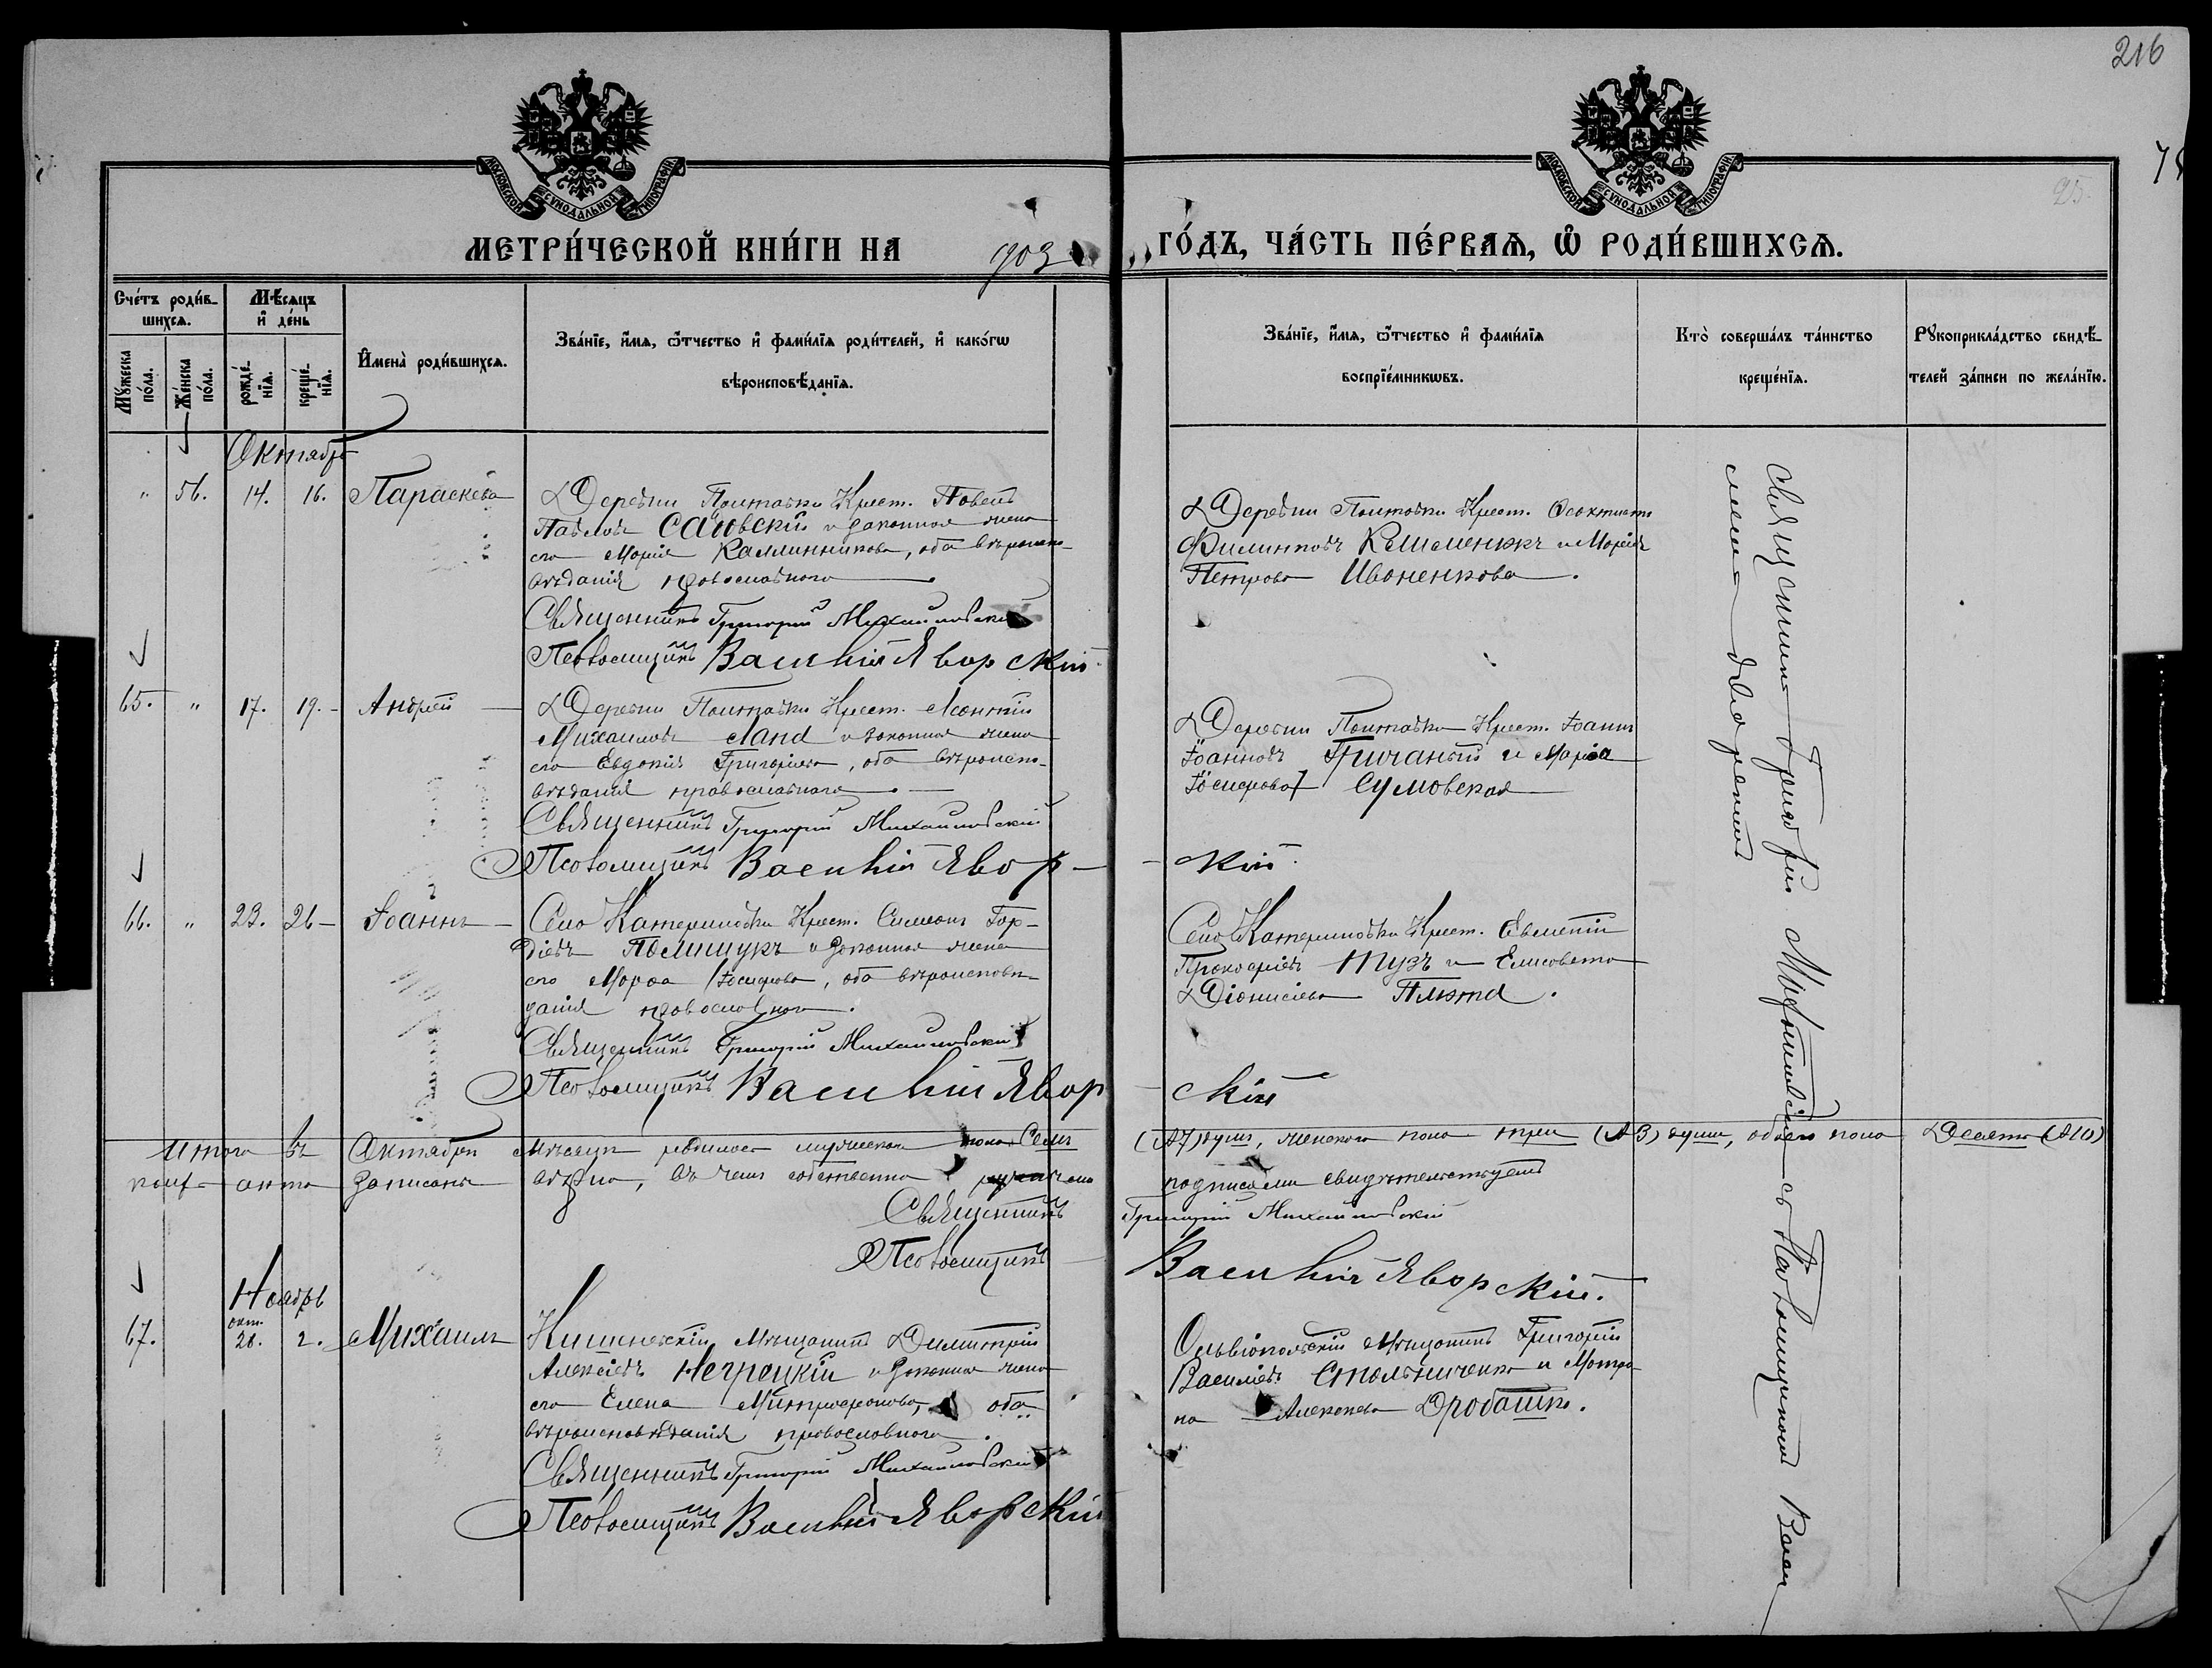 216
МОСКОВСКОЙ СѴНОДАЛЬНОЙ ТИПОГРАФІИ
МОСКОВСКОЙ СѴНОДАЛЬНОЙ ТИПОГРАФІИ
25.
МЕТРИ́ЧЕСКОЙ КНИ́ГИ НА 903 ГО́ДЪ, ЧА́СТЬ ПЕ́РВАѦ, Ѡ҆ РОДИ́ВШИХСѦ.
Сче́тъ роди́в-
шихсѧ.
Мꙋ́жеска по́ла.
Же́нска по́ла.
Мѣ́сѧцъ
и҆ де́нь
рожде́нїѧ.
креще́нїѧ.
И҆мена̀ роди́вшихсѧ.
Зва́нїе, и҆́мѧ, ѻ҆́тчество и҆ фами́лїѧ роди́телей, и҆ како́гѡ
вѣроисповѣ́данїѧ.
Зва́нїе, и҆́мѧ, ѻ҆́тчество и҆ фами́лїѧ
воспрїе́мникѡвъ.
Кто̀ соверша́лъ та́инство
креще́нїѧ.
Рꙋкоприкла́дство свидѣ́-
телей за́писи по жела́нїю.
Октябрь
" 56. 14. 16. Параскева
Деревни Полтавки Крест. Павелъ
Павловъ и законная жена
его Марія Каллинникова, оба вѣроиспо-
вѣданія православнаго
Священникъ Григорій Михайловскій
Псаломщикъ Василій Яворскій
Деревни Полтавки Крест.
Филипповъ и Марія
Петрова Ивоненкова.
65. " 17. 19. Андрей
Деревни Полтавки Крест. Леонтій
Михаиловъ Лапа и законная жена
его Евдокія Григорьева, оба вѣроиспо-
вѣданія православнаго
Священникъ Григорій Михайловскій
Псаломщикъ Василій Явор-
-скій
Деревни Полтавки Крест. Іоаннъ
Іоанновъ и Марія
Іосифова Сумовская
66. " 23. 26 Іоаннъ
Село Катериновки Крест. Симеонъ Гор-
діевъ Полищукъ и законная жена
его Марѳа Іосифова, оба вѣроисповѣ-
данія православнаго.
Священникъ Григорій Михайловскій
Псаломщикъ Василій Явор
скій
Село Катериновки Крест. Евменій
Прокофіевъ Тузъ и Елисавета
Діонисіева Плюта.
Итого въ Октябрѣ мѣсяцѣ родилось мужескаго пола Семь (№7) душъ, женскаго пола три (№3) души, обоего пола Десять (№10)
записаны вѣрно, въ чемъ собственно подписями свидѣтельствуемъ
Священникъ Григорій Михайловскій
Псаломщикъ Василій Яворскій.
Ноябрь
67. окт. 28. 2. Михаилъ
Кишиневскій Мѣщанинъ Димитрій
Алексіевъ Негрецкій и законная жена
его Елена Митрофанова, оба
вѣроисповѣданія православнаго.
Священникъ Григорій Михайловскій
Псаломщикъ Василій Яворскій
Ольвіопольскій Мѣщанинъ Григорій
Василіевъ Стольниченко и Матро-
на Алексіева Дробашко.
Священникъ Григорій Михайловскій съ Псаломщикомъ Васи
ліемъ Яворскимъ